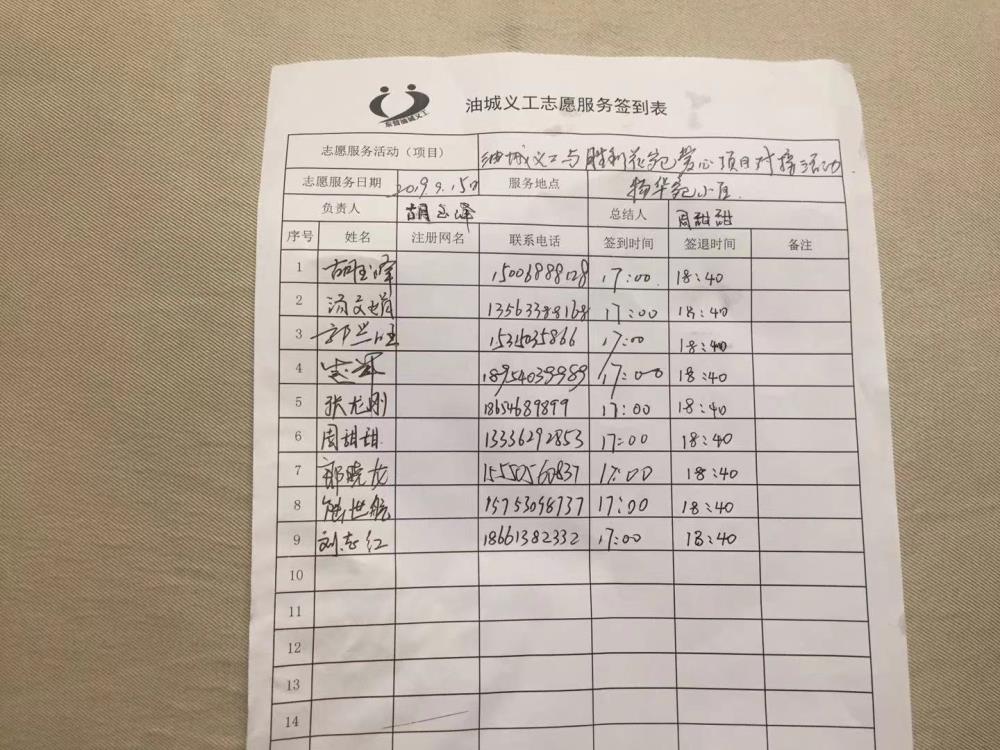 东营油城义工
油城义工志愿服务签到表
志愿服务活动（项目） 油城义工与胜利花苑爱心项目对接活动
志愿服务日期 2019 9.15日 服务地点 杨华苑小区
负责人 胡玉峰 总结人 周甜甜
序号 姓名 注册网名 联系电话 签到时间 签退时间 备注
1 胡玉峰 15006888128 17:00 18:40
2 汤文娟 13563388168 17:00 18:40
3 郭兰旺 15315035866 17:00 18:40
4 18954039989 17:00 18:40
5 张龙刚 18654689899 17:00 18:40
6 周甜甜 13336292853 17:00 18:40
7 郭晓龙 15550560837 17:00 18:40
8 世航 15753098737 17:00 18:40
9 刘志红 18661382332 17:00 18:40
10
11
12
13
14